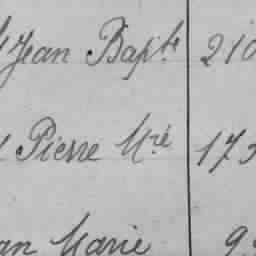 Jean Bapte 210
Pierre Mré 173
an Marie 9